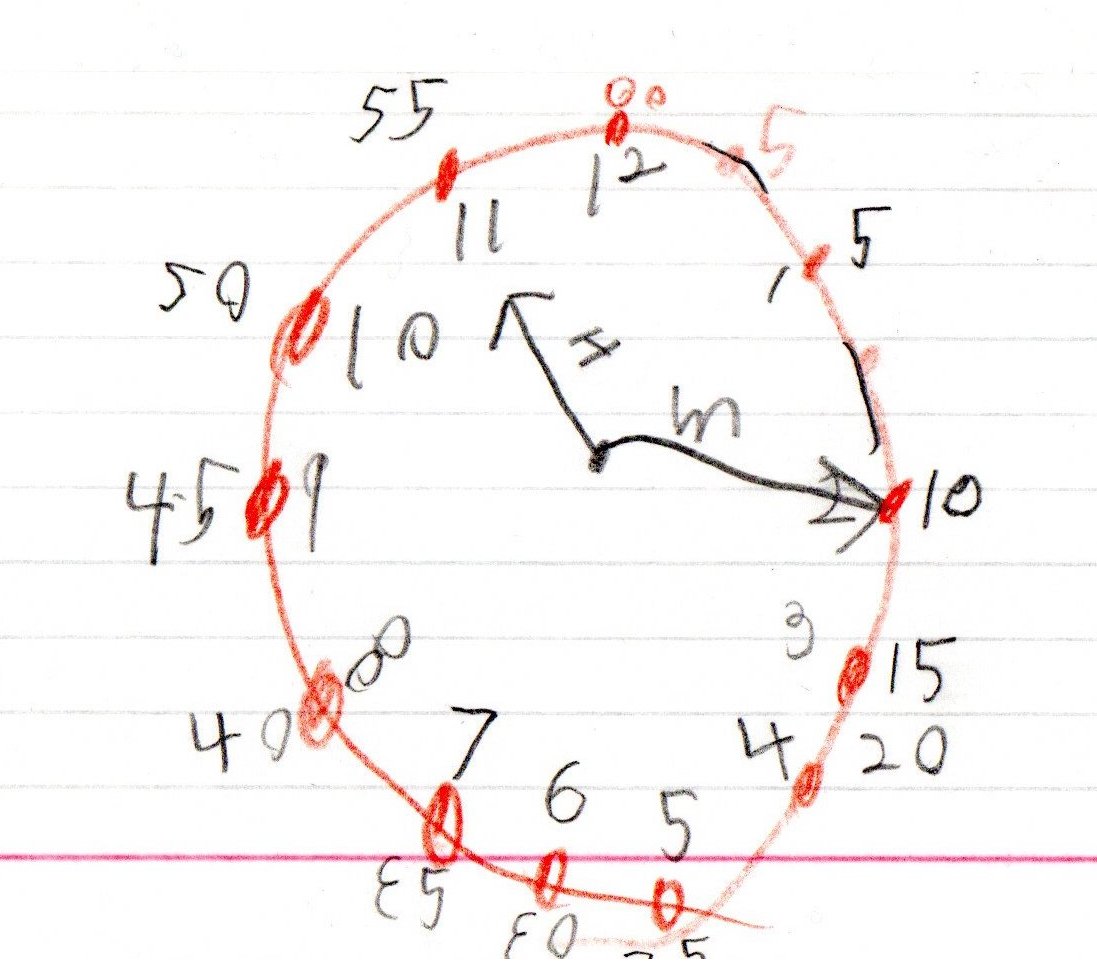 00
55 5
12
11 5
1
50 10
H
m
45 9 2 10
3 15
8
40 4 20
7
6 5
35
30 25